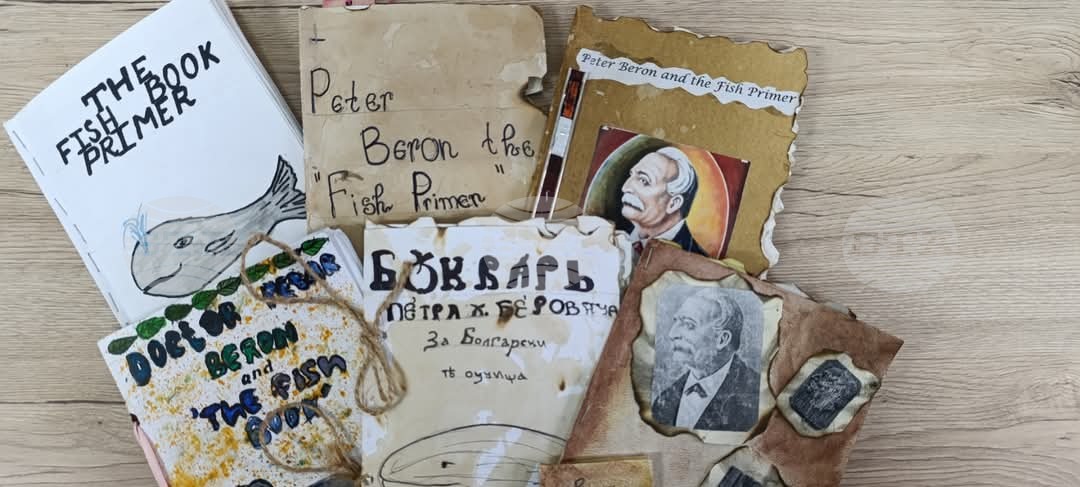 THE
FISH BOOK
PRIMER
Peter
Beron the
"Fish Primer"
Peter Beron and the Fish Primer
DOCTOR PETAR
BERON
and
'THE FISH
BOOK'
БУКВАРЬ
ПЕТРА Х. БЕРОВЧА
За Болгарски
тѣ оучища